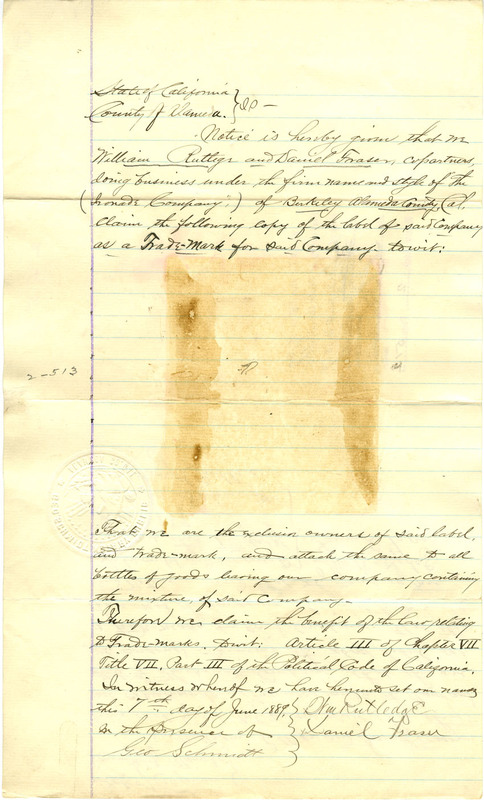 State of California }
County of Alameda. } SS -
Notice is hereby given that we
William Rutlege and Daniel Fraser, copartners,
doing business under the firm name and style of the
( Company ) of Berkeley Alameda County, Cal
Claim the following copy of the label of said Company
as a Trade-Mark for said Company towit:
2-513
That we are the exclusive owners of said label,
and trade-mark, and attach the same to all
bottles of goods leaving our company containing
the mixture, of said Company -
Therefore we claim the benefit of the law relating
to Trade-marks. towit: Article III of Chapter VII
Title VII, Part III of the Political Code of California.
In witness whereof we have hereunto set our names
this 7th day of June 1889, } Wm Rutledge
in the presence of } Daniel Fraser
Geo Schmidt }